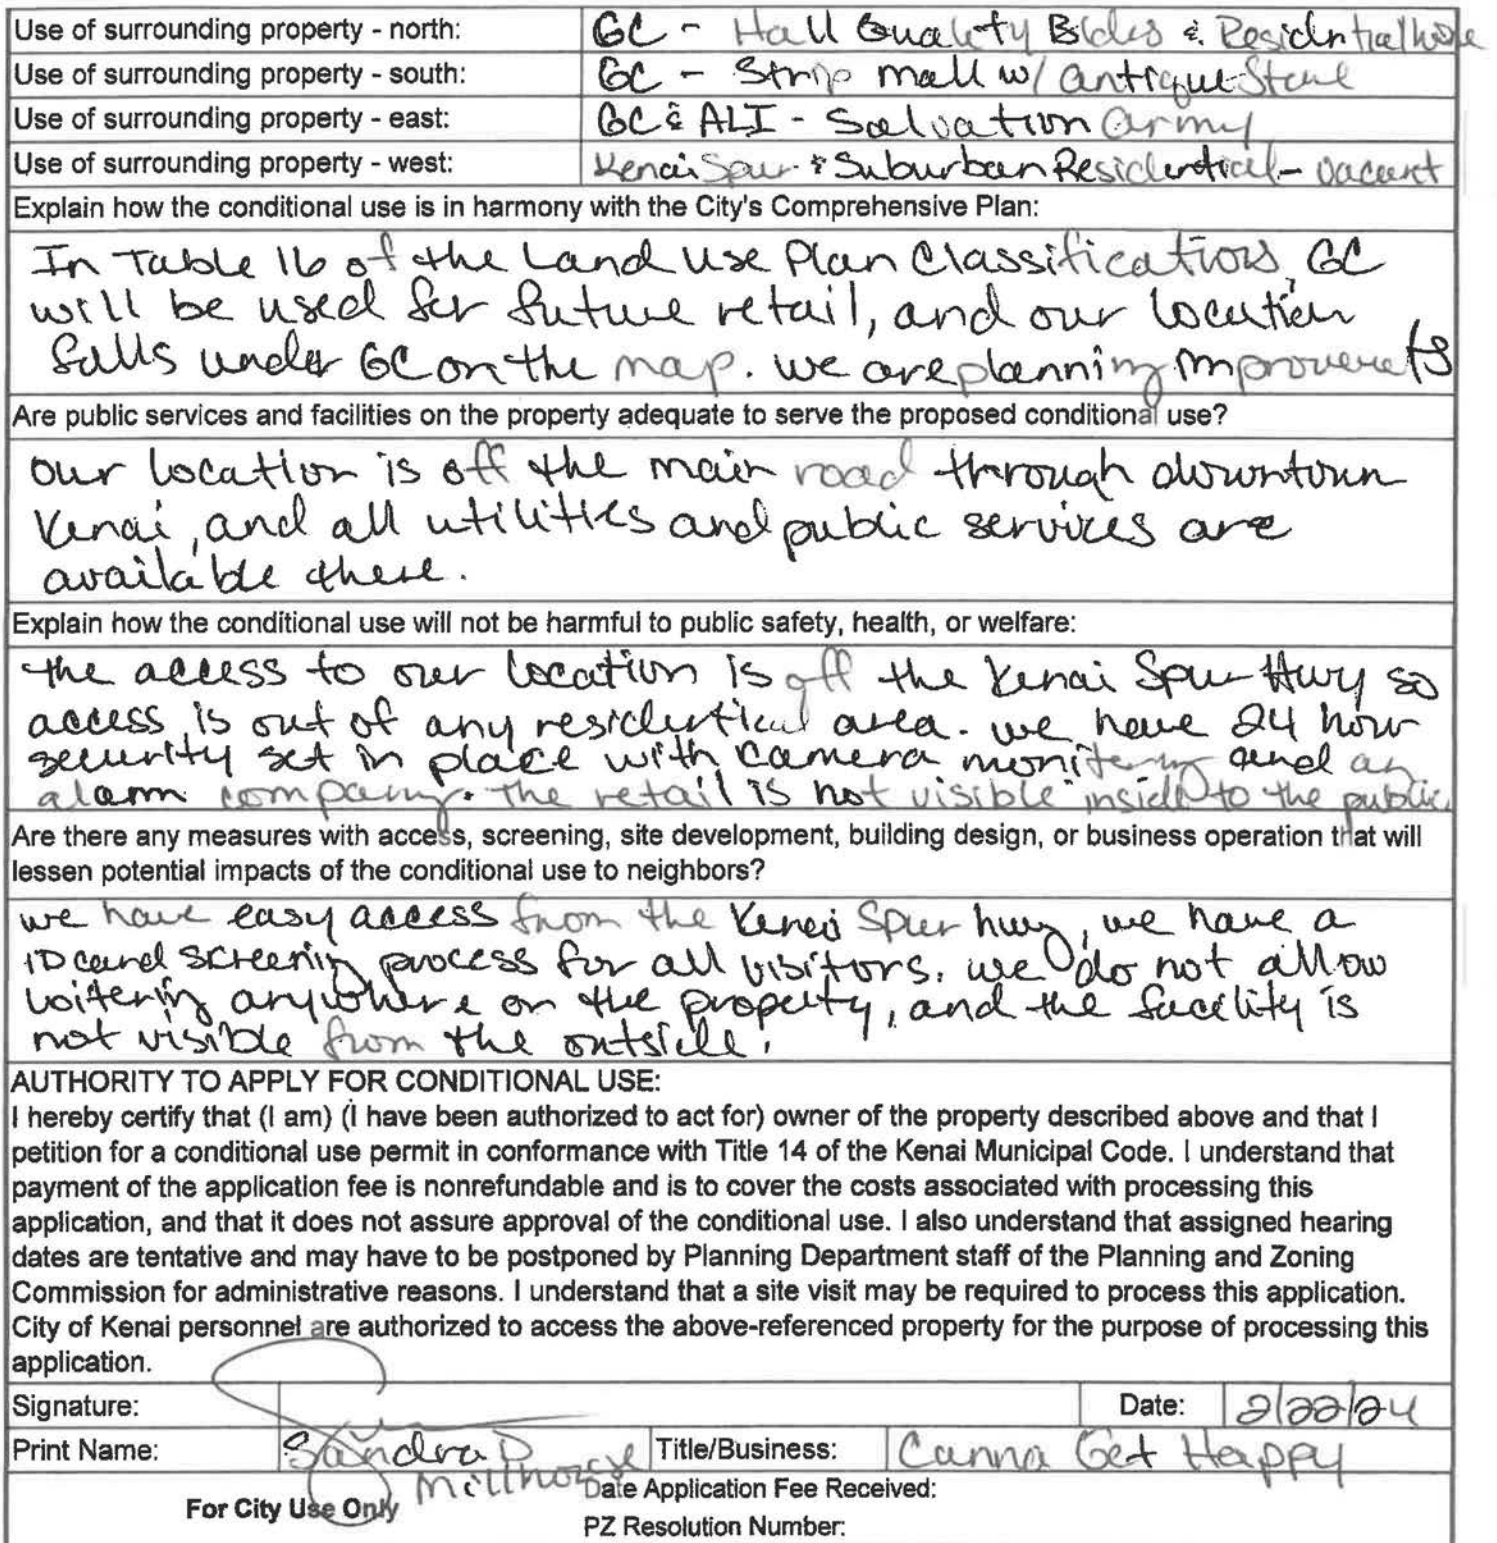 Use of surrounding property - north: GC - Hall Quality Bldrs & Residential home
Use of surrounding property - south: GC - Strip mall w/ antique Store
Use of surrounding property - east: GC & ALI - Salvation army
Use of surrounding property - west: Kenai Spur & Suburban Residential - vacant
Explain how the conditional use is in harmony with the City's Comprehensive Plan:
In Table 16 of the Land Use Plan Classifications, GC
will be used for future retail, and our location
falls under GC on the map. we are planning improvements
Are public services and facilities on the property adequate to serve the proposed conditional use?
our location is off the main road through downtown
Kenai, and all utilities and public services are
available there.
Explain how the conditional use will not be harmful to public safety, health, or welfare:
the access to our location is off the Kenai Spur Hwy so
access is out of any residential area. we have 24 hour
security set in place with camera monitering and an
alarm company. The retail is not visible inside to the public.
Are there any measures with access, screening, site development, building design, or business operation that will
lessen potential impacts of the conditional use to neighbors?
we have easy access from the Kenai Spur hwy, we have a
ID card screening process for all visitors. we do not allow
loitering anywhere on the property, and the facility is
not visible from the outside.
AUTHORITY TO APPLY FOR CONDITIONAL USE:
I hereby certify that (I am) (I have been authorized to act for) owner of the property described above and that I
petition for a conditional use permit in conformance with Title 14 of the Kenai Municipal Code. I understand that
payment of the application fee is nonrefundable and is to cover the costs associated with processing this
application, and that it does not assure approval of the conditional use. I also understand that assigned hearing
dates are tentative and may have to be postponed by Planning Department staff of the Planning and Zoning
Commission for administrative reasons. I understand that a site visit may be required to process this application.
City of Kenai personnel are authorized to access the above-referenced property for the purpose of processing this
application.
Signature: Date: 2/22/24
Print Name: Sandra D Millhouse Title/Business: Canna Get Happy
For City Use Only
Date Application Fee Received:
PZ Resolution Number: